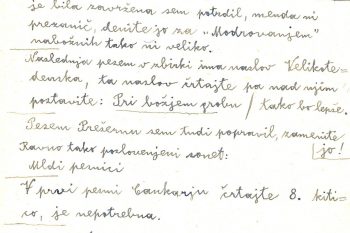 je bila zavržena sem potrdil, menda ni
prezanič, denite jo za „Modrovanjem"
nabožnih tako ni veliko.
Naslednja pesem v zbirki ima naslov Velikote-
denska, ta naslov črtajte pa nad njim
postavite: Pri božjem grobu / tako bo lepše.
Pesem Prešernu sem tudi popravil, zamenite
jo!
Ravno tako poslovenjeni sonet:
Mladi pevnici
V prvi pesmi Cankarju črtajte 8. kiti-
co, je nepotrebna.